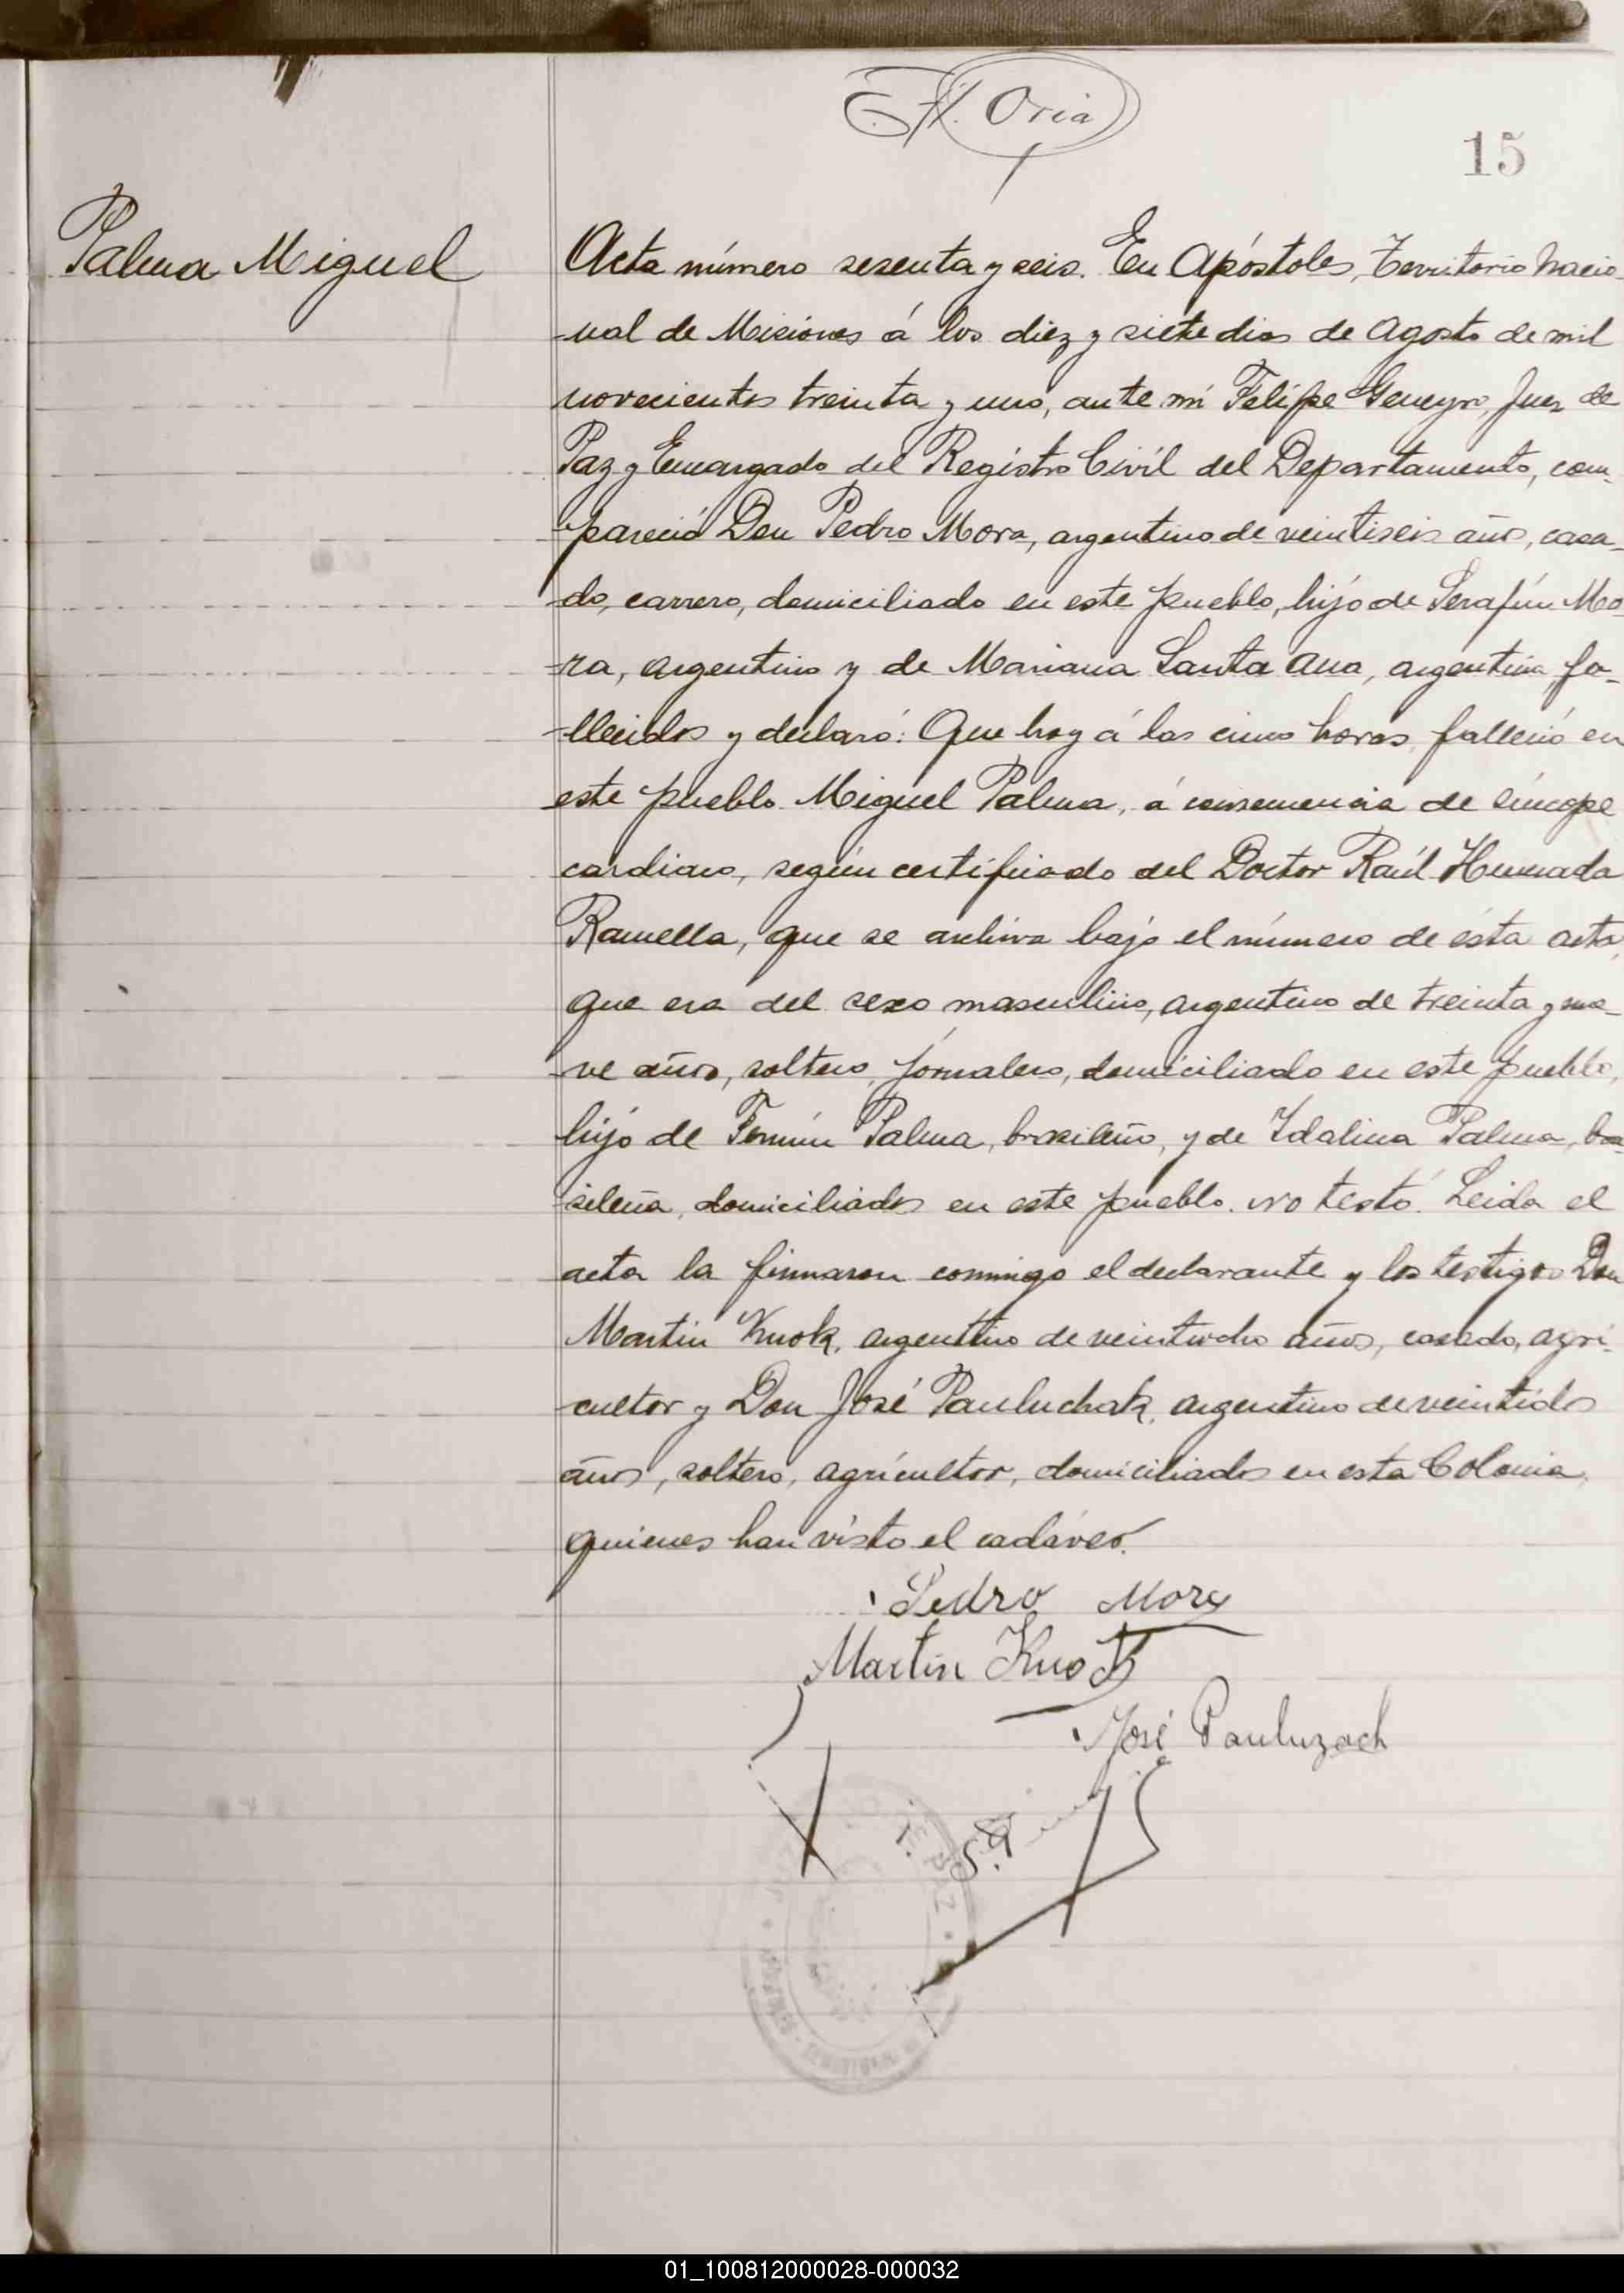 Oria
15
Palma Miguel
Acta número sesenta y seis. En Apóstoles, Territorio Nacio-
-nal de Misiones á los diez y siete dias de Agosto de mil
novecientos treinta y uno, ante mi Felipe Geneyro, Juez de
Paz y Encargado del Registro Civil del Departamento, com-
-pareció Don Pedro Mora, argentino de veintiseis años, casa-
-do, carrero, domiciliado en este pueblo, hijo de Serafín Mo-
-ra, argentino y de Mariana Santa Ana, argentina, fa-
-llecidos y declaró: Que hoy á las cinco horas, falleció en
este pueblo Miguel Palma, á consecuencia de síncope
cardiaco, según certificado del Doctor Raúl
Ramella, que se archiva bajo el número de ésta acta,
que era del sexo masculino, argentino de treinta y nue-
-ve años, soltero, jornalero, domiciliado en este pueblo,
hijo de Fermín Palma, brasileño, y de Idalina Palma, bra-
-sileña, domiciliados en este pueblo. No testó. Leida el
acta la firmaron conmigo el declarante y los testigos Don
Martin Knok, argentino de veintiocho años, casado, agri-
-cultor y Don José Pauluchak, argentino de veintidos
años, soltero, agricultor, domiciliados en esta Colonia,
quienes han visto el cadáver.
Pedro Mora
Martin Knok
José Pauluzach
01_100812000028-000032